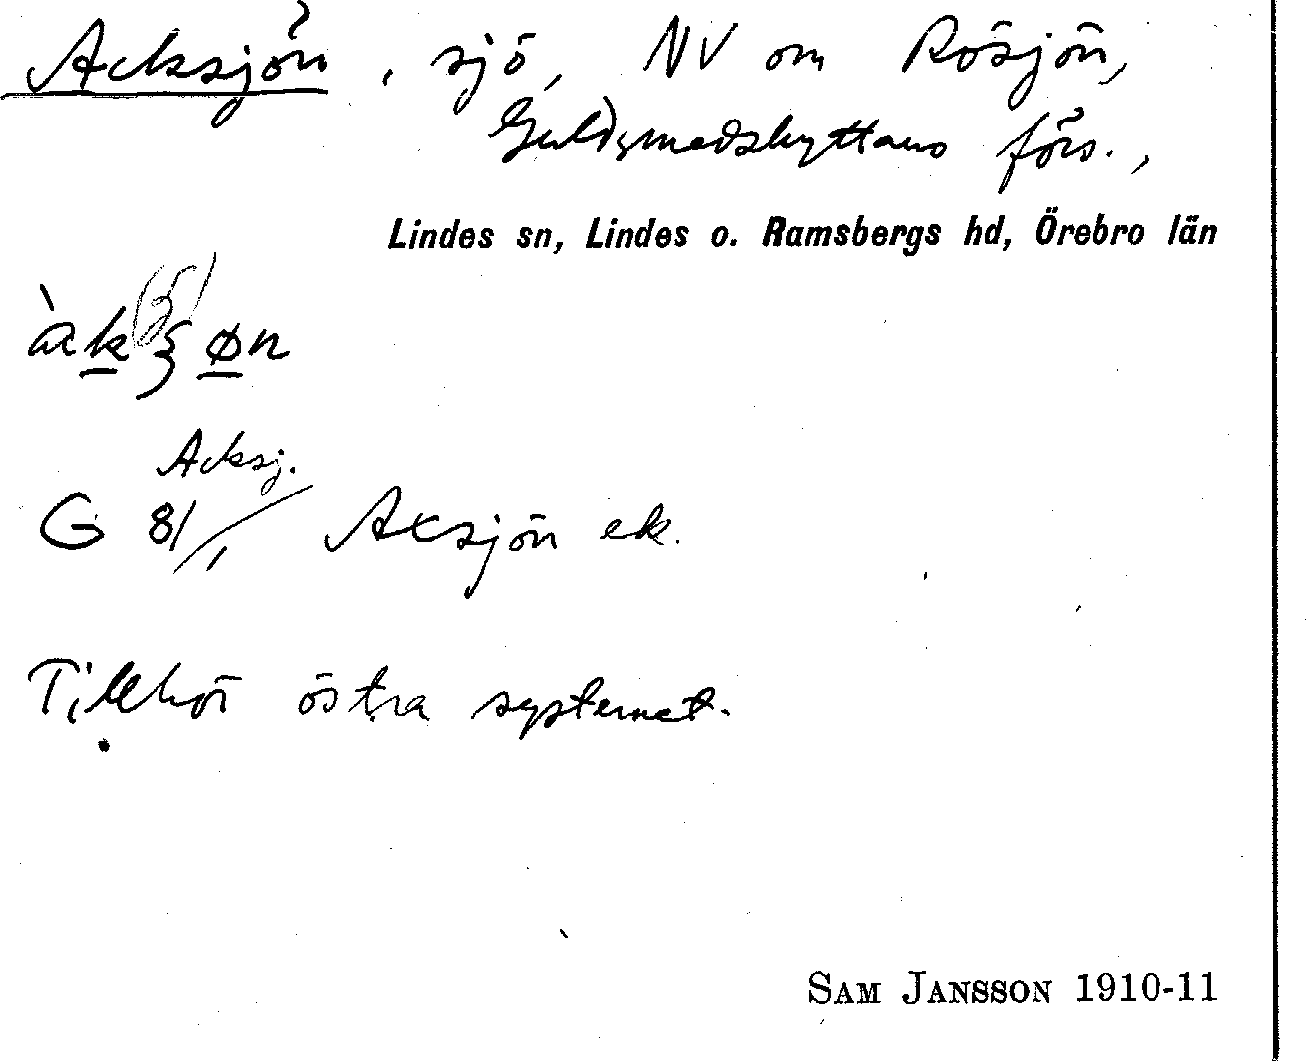 Acksjön, sjö, NV om Rösjön,
Guldsmedshyttans förs.,
Lindes sn, Lindes o. Ramsbergs hd, Örebro län
Acksj.
G 81/1 Axsjön ek.
Tillhör östra systemet.
SAM JANSSON 1910-11